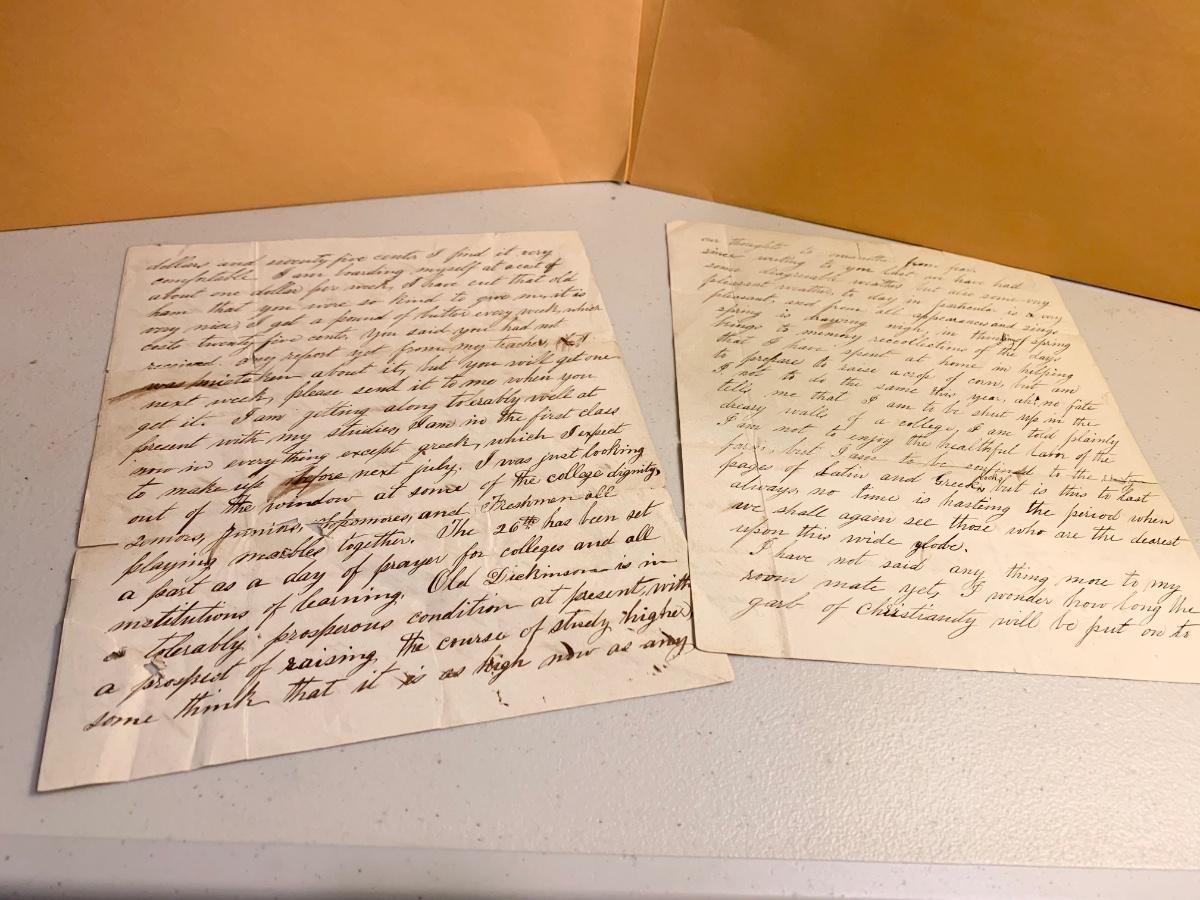 dollars and seventy five cents I find it very
comfortable. I am boarding myself at a cost of
about one dollar per week, I have cut that old
ham that you were so kind to give me, it is
very nice, I get a pound of butter every week, which
costs twenty five cents. You said you had not
received any report yet from my teacher,
was mistaken about it, but you will get one
next week, please send it to me when you
get it. I am getting along tolerably well at
present with my studies, I am in the first class
now in everything except greek, which I expect
to make up before next July. I was just looking
out of the window at some of the college dignity,
Juniors, Sophomores, and Freshmen all
playing marbles together. The 26th has been set
a part as a day of prayer for colleges and all
institutions of learning. Old Dickinson is in
a tolerably prosperous condition at present, with
a prospect of raising the course of study higher,
some think that it is as high now as any
our thoughts to
since writing to you last we have had
some disagreeable weather but also some very
pleasant weather to day in particular is a very
pleasant and from all appearances and sings
spring is drawing nigh, in thinking of spring
brings to memory recollections of the days
that I have spent at home in helping
to prepare to raise a crop of corn, but am
I not to do the same this year, ah! no fate
tells me that I am to be shut up in the
dreary walls of a college, I am told plainly
I am not to enjoy the healthful labor of the
farm, but I am to be confined to the
pages of Latin and Greek books, but is this to last
always, no time is hasting the period when
we shall again see those who are the dearest
upon this wide globe.
I have not said any thing more to my
room mate yet, I wonder how long the
garb of christianity will be put on to